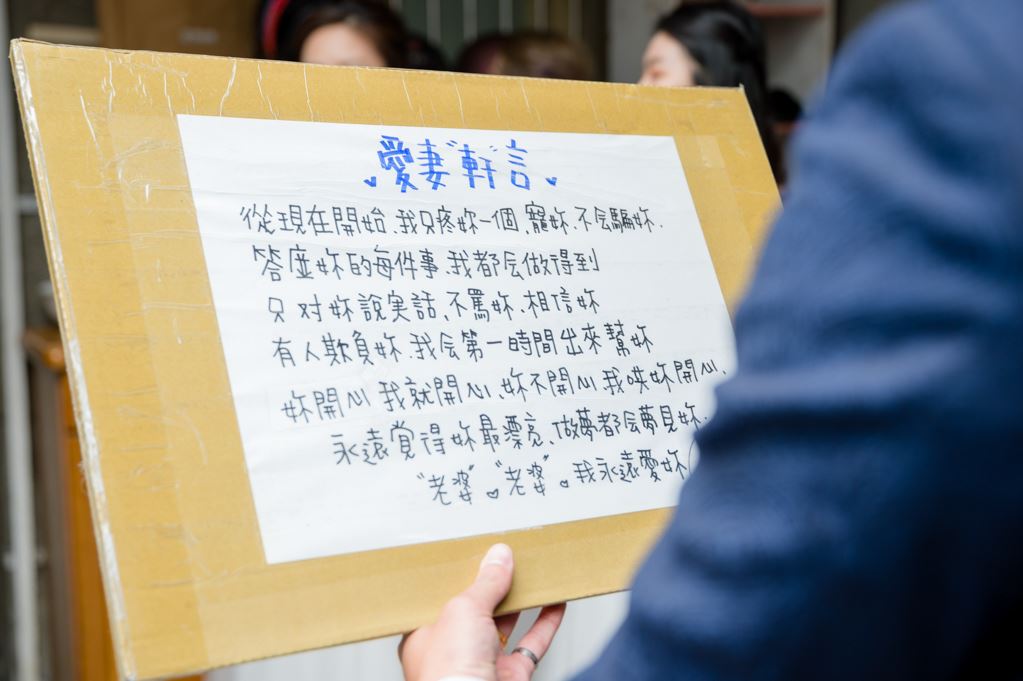 愛妻"軒"言
從現在開始、我只疼妳一個、寵妳、不会騙妳、
答應妳的每件事、我都会做得到
只对妳說実話、不罵妳、相信妳
有人欺負妳、我会第一時間出來幫妳
妳開心我就開心、妳不開心、我哄妳開心、
永遠覺得妳最漂亮、做夢都会夢見妳、
"老婆"。"老婆"。我永遠愛妳